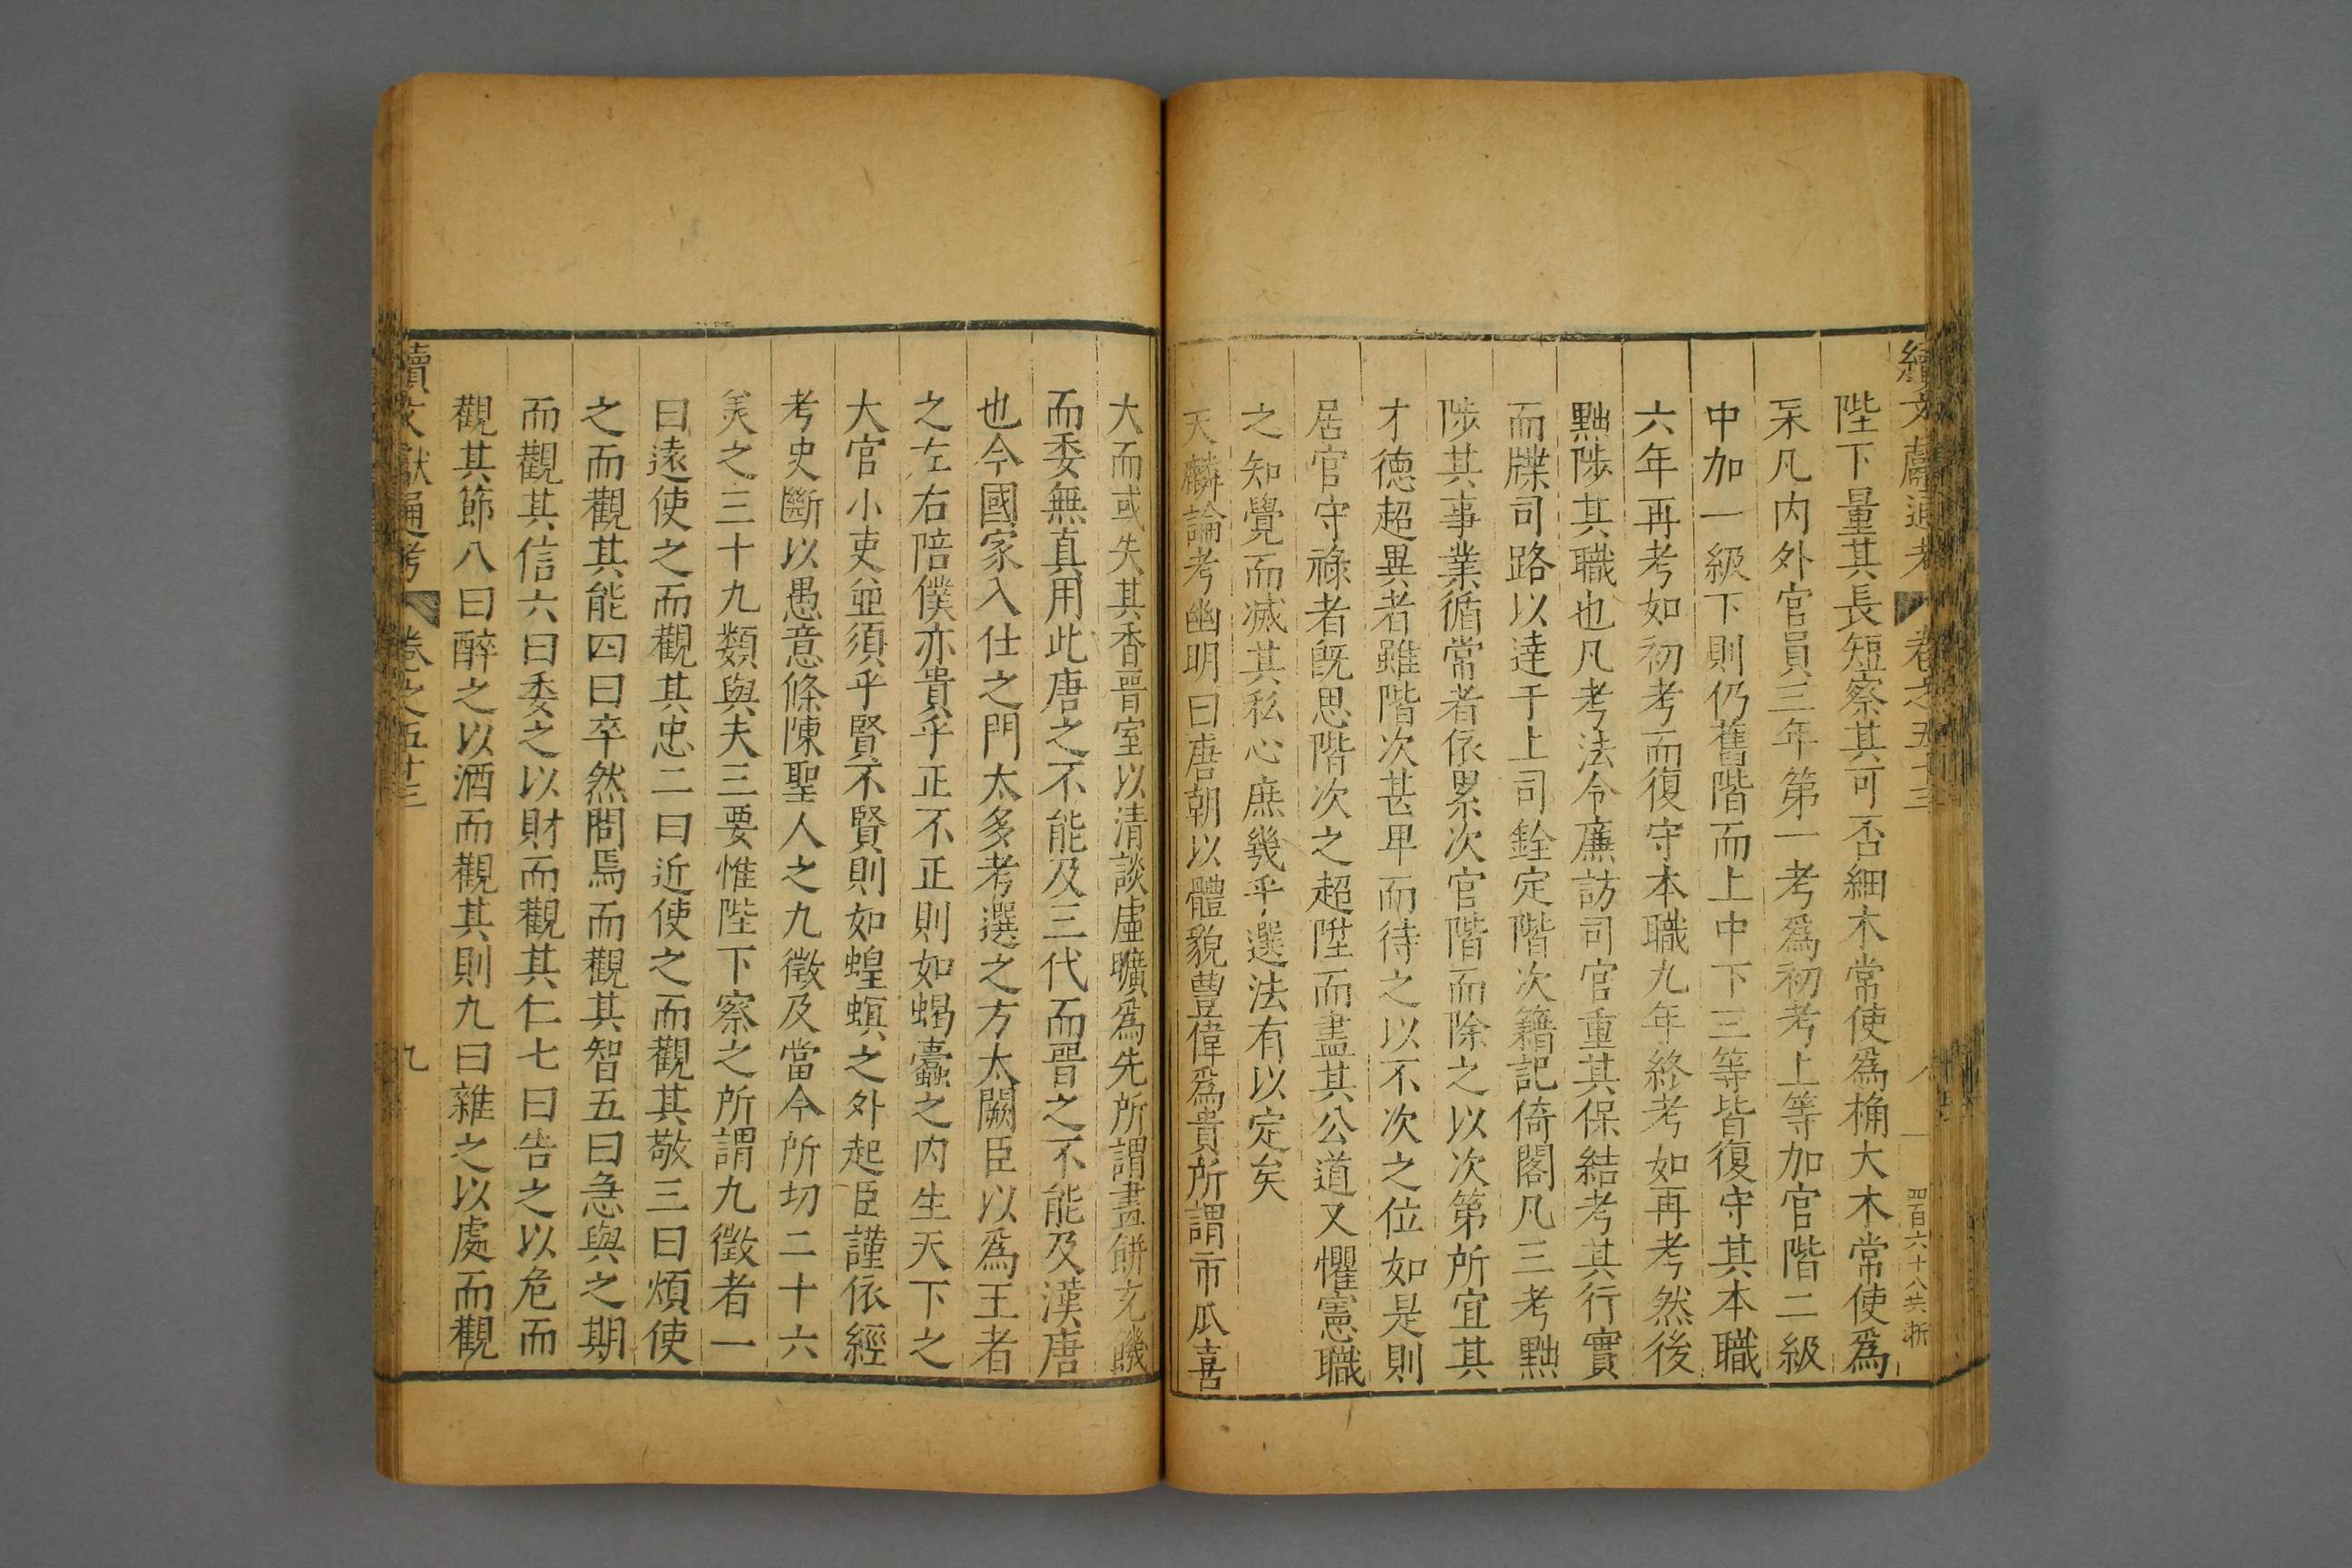 續文獻通考 卷之五十三 八 四百六十八共 浙
陛下量其長短察其可否細木常使爲桷大木常使爲
杗凡内外官員三年第一考爲初考上等加官階二級
中加一級下則仍舊階而上中下三等皆復守其本職
六年再考如初考而復守本職九年終考如再考然後
黜陟其職也凡考法令廉訪司官重其保結考其行實
而牒司路以達于上司銓定階次籍記倚閣凡三考黜
陟其事業循常者依累次官階而除之以次第所宜其
才德超異者雖階次甚卑而待之以不次之位如是則
居官守祿者旣思階次之超陞而盡其公道又懼憲職
之知覺而滅其私心庶幾乎選法有以定矣
天麟論考幽明曰唐朝以體貌豊偉爲貴所謂市瓜喜
大而或失其香晉室以清談虛曠爲先所謂畫餅充饑
而委無真用此唐之不能及三代而晉之不能及漢唐
也今國家入仕之門太多考選之方太闕臣以爲王者
之左右陪僕亦貴乎正不正則如蝎蠹之内生天下之
大官小吏並須乎賢不賢則如蝗螟之外起臣謹依經
考史斷以愚意條陳聖人之九徵及當今所切二十六
美之三十九類與夫三要惟陛下察之所謂九徵者一
曰遠使之而觀其忠二曰近使之而觀其敬三曰煩使
之而觀其能四曰卒然問焉而觀其智五曰急與之期
而觀其信六曰委之以財而觀其仁七曰告之以危而
觀其節八曰醉之以酒而觀其則九曰雜之以處而觀
續文獻通考 卷之五十三 九